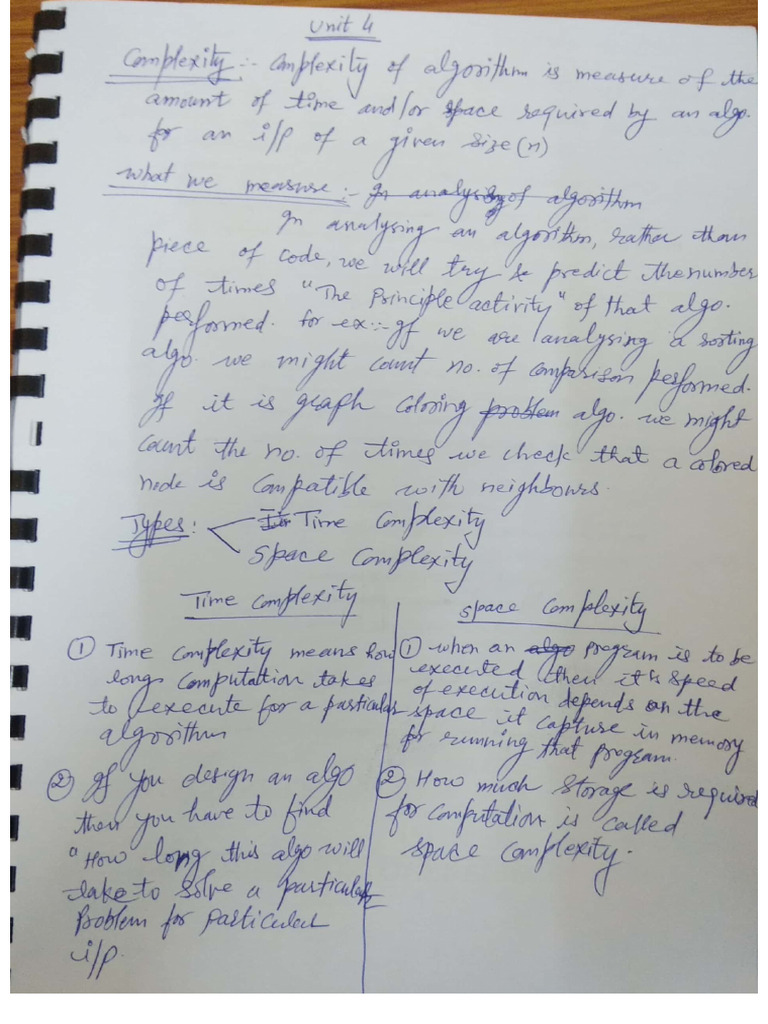 Unit 4
Complexity :- Complexity of algorithm is measure of the
amount of time and/or space required by an algo.
for an i/p of a given size(n)
what we measure :- In analysing of algorithm
In analysing an algorithm, rather than
piece of code, we will try to predict the number
of times "The Principle activity" of that algo.
performed. for ex:- If we are analysing a sorting
algo. we might count no. of comparison performed.
If it is graph coloring problem algo. we might
count the no. of times we check that a colored
node is compatible with neighbours.
Types : Time Complexity
Space Complexity
Time complexity
① Time complexity means how
long computation takes
to execute for a particular
algorithm
② If you design an algo
then you have to find
"How long this algo will
take to solve a particular
problem for particular
i/p.
space complexity
① when an algo program is to be
executed then it's speed
of execution depends on the
space it capture in memory
for running that program.
② How much storage is required
for computation is called
space complexity.